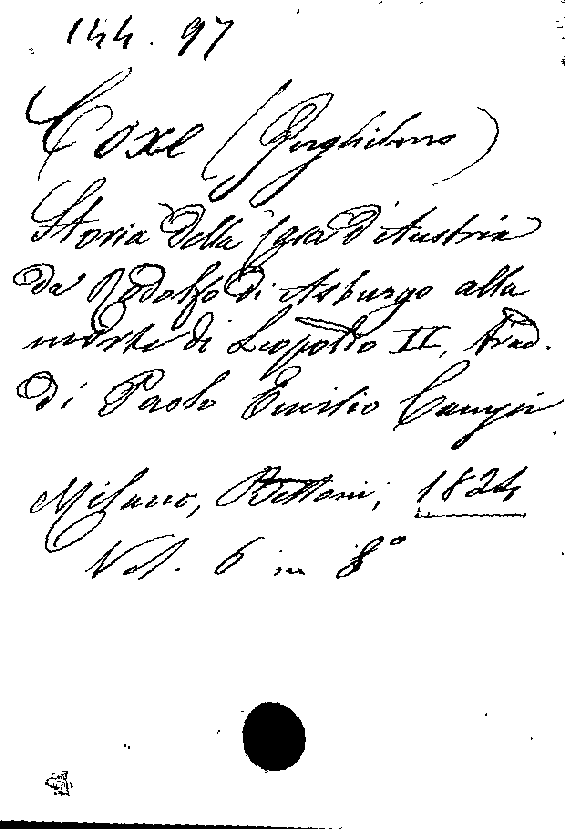 144. 97
Coxe (Guglielmo)
Storia della Casa d'Austria
da Rodolfo di Asburgo alla
morte di Leopoldo II, trad.
di Paolo Emilio Campi
Milano, Bettoni, 1824
Vol. 6 in 8°